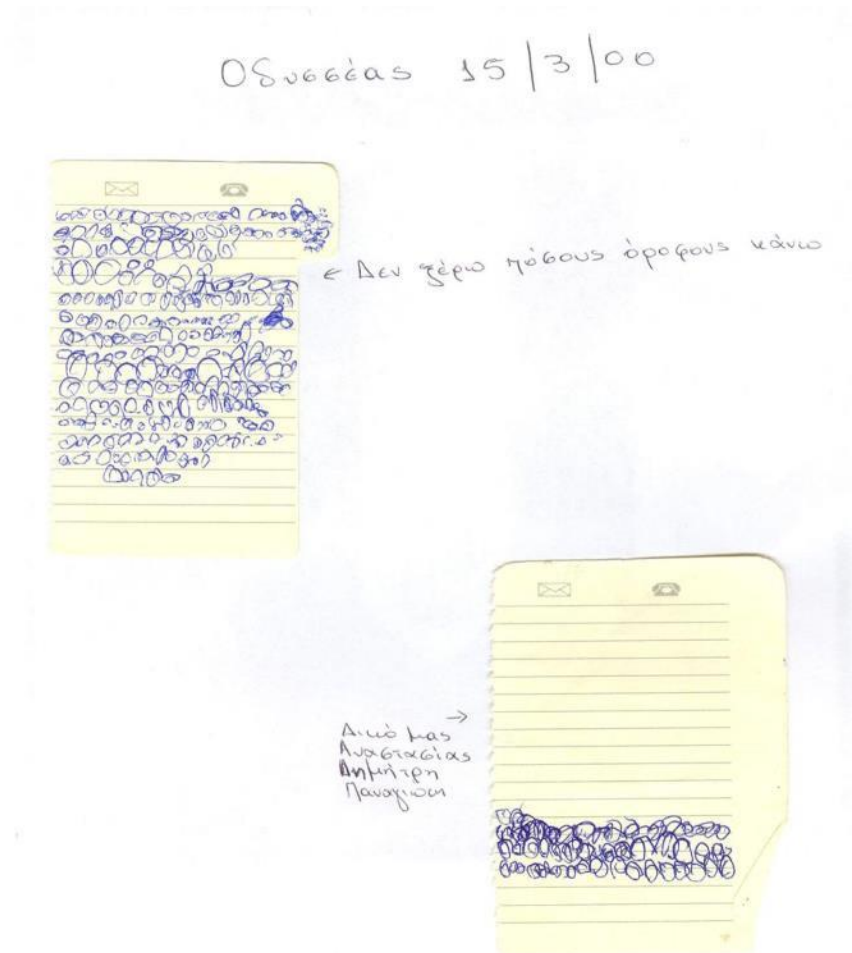 Οδυσσέας 15/3/00
← Δεν ξέρω πόσους όροφους κάνω
Δικό μας →
Αναστασίας
Δημήτρη
Παναγιώτη